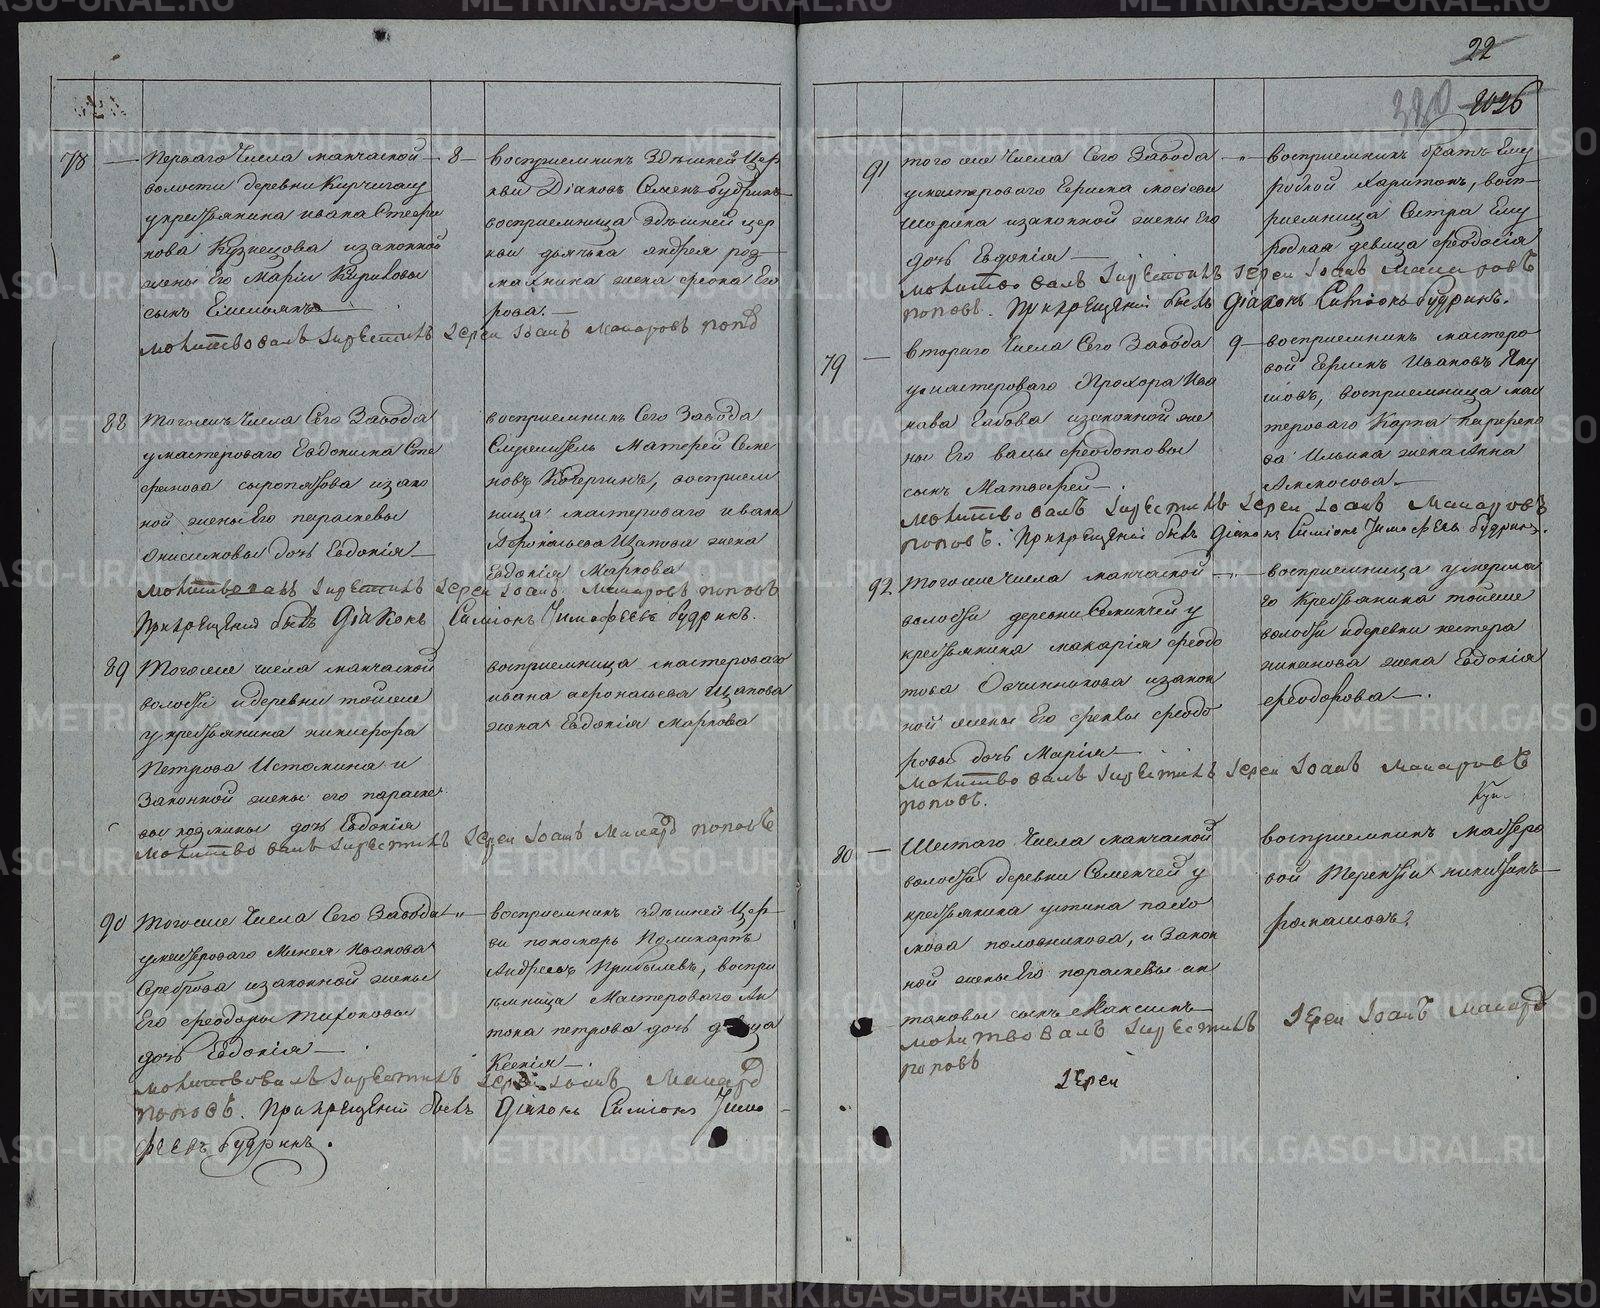 22
2026
78 — перваго Числа манчаской — 8 —
волости деревни Кирчигаш
у крестьянина ивана Стефа
нова Кузнецова изаконной
жены Его Марiи Кириловы
сынъ Емельянъ —
восприемникъ Здѣшней Цер
кви Дiаконъ Семенъ Будринъ
восприемница здѣшней цер
кви дьячька андрея
жена Его
рова. —
молитвовалъ I крестилъ Iереи Iоанъ Макаровъ поповъ
88 тогожъ Числа Сего Завода
у мастероваго Евдокима Сте
фанова сыропятова изако
ной жены Его парасковьи
Онисимовы дочь Евдокiя —
восприемникъ Сего Завода
Служитель Матфей Семе
новъ Кочергинъ, восприем
ница мастероваго ивана
Афонасьева Щапова жена
Евдокiя Маркова
молитвовалъ I крестилъ Iереи Iоанъ Макаровъ поповъ
При крещенiи былъ Дiаконъ Симiонъ Тимофеевъ Будринъ.
89 Тогоже числа манчаской
волости идеревни тойже
у крестьянина никифора
Петрова Истомина и
Законной жены его параске
вы козмины дочь Евдокiя
восприемница мастероваго
ивана афонасьева Щапова
жена Евдокiя маркова
молитвовалъ I крестилъ Iереи Iоанъ Макаро поповъ
90 тогоже Числа Сего Завода — „ —
умастероваго Минея Иванова
Сереброва изаконной жены
Его феодоры тихоновы
дочь Евдокiя —
восприемникъ здѣшней Цер
кви пономарь Поликарпъ
Андреевъ Прибылевъ, воспри
ѣмница Мастероваго Ан
тона петрова дочь девица
Ксенiя —
молитвовалъ I крестилъ Iереи Iоанъ Макаро
поповъ. При крещенiи былъ Дiаконъ Симiонъ Тимо
феевъ Будринъ.
91 того же Числа Сего Завода — „ —
умастероваго Ефима моисеева
Ширина изаконной жены Его
дочь Евдокiя —
восприемникъ братъ Ему
родной Харитонъ, восп
риемница Сестра Ему
Родная девица феодосiя
молитвовалъ I крестилъ Iереи Iоанъ Макаровъ
поповъ. При крещенiи былъ Дiаконъ Симiонъ Будринъ.
79 — втораго Числа Сего Завода 9 —
умастероваго Прохора Ива
нова Глебова изаконной же
ны Его вассы феодотовы
сынъ Матвефей —
восприемникъ мастеро
вой Ефимъ Ивановъ Яку
шовъ, восприемница мас
тероваго Карпа
ва Ильина жена Анна
Амосова. —
молитвовалъ I крестилъ Iереи Iоанъ Макаровъ
поповъ. При крещенiи былъ Дiаконъ Симiонъ Тимофеевъ Будринъ.
92 Тогоже Числа манчаской — „ —
волости деревни Семичей у
крестьянина макарiя феодо
това Овчинникова изакон
ной жены Его феклы феодо
ровы дочь Марiя —
восприемница умерша
го Крестьянина тойже
волости идеревни нестера
никонова жена Евдокiя
феодорова —.
молитвовалъ I крестилъ Iереи Iоанъ Макаровъ
поповъ.
80 — Шестаго Числа манчаской
волости деревни Семичей у
крестьянина устина пахо
мова половникова, и Закон
ной жены Его парасковьи ан
тоновы сынъ Максимъ
восприемникъ мастеро
вой Терентiй никитинъ
ромашовъ
молитвовалъ I крестилъ Iереи Iоанъ Макаро
поповъ
Iереи
METRIKI.GASO-URAL.RU